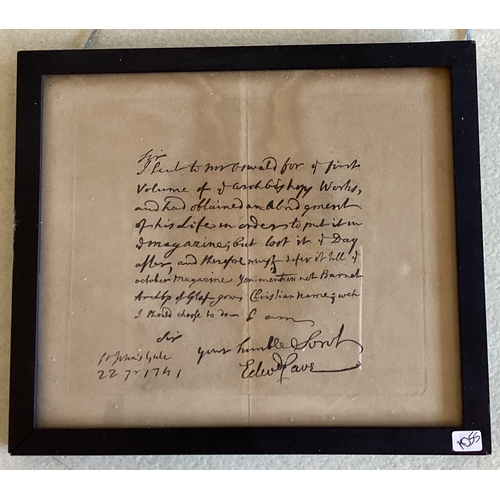 Sir
I sent to Mr Oswald for ye first
Volume of ye Archbishops Works,
and had obtained an Abridgment
of his Life in order to put it in
ye magazine; but lost it ye Day
after, and therefore must defer it till ye
october magazine You mention not Burnet
Archbp of Glasgows Christian name; wch
I should choose to do I am
Sir
your humble Servt
St John's Gate
Edwd Cave
22 7r 1741